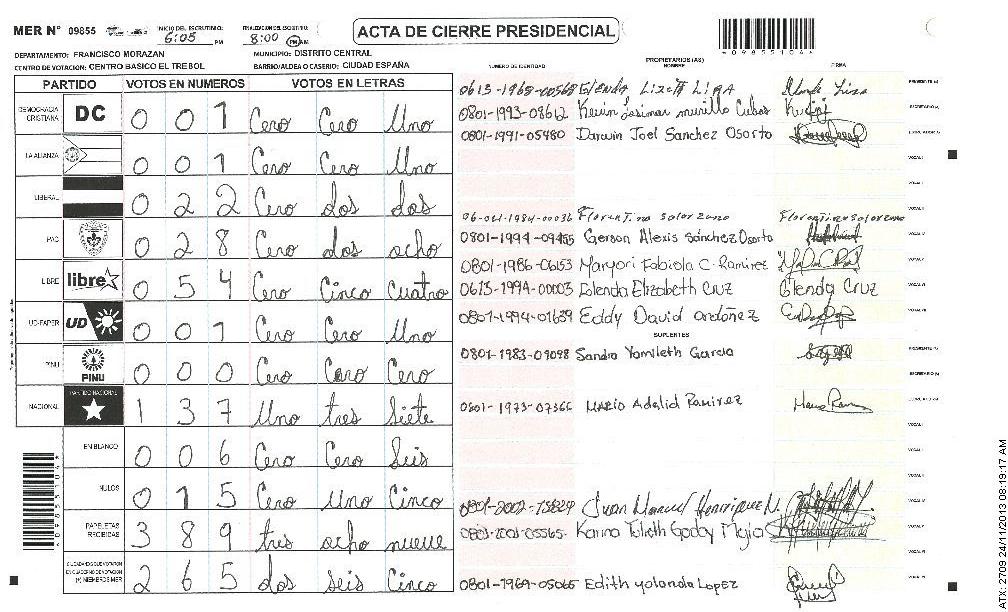 MER N° 09855
INICIO DEL ESCRUTINIO: 6:05 PM
FINALIZACION DEL ESCRUTINIO: 8:00 AM PM
ACTA DE CIERRE PRESIDENCIAL
09855104
DEPARTAMENTO: FRANCISCO MORAZAN
MUNICIPIO: DISTRITO CENTRAL
CENTRO DE VOTACION: CENTRO BASICO EL TREBOL
BARRIO/ALDEA O CASERIO: CIUDAD ESPAÑA
PARTIDO VOTOS EN NUMEROS VOTOS EN LETRAS
DEMOCRACIA CRISTIANA DC 0 0 1 Cero Cero Uno
LA ALIANZA 0 0 1 Cero Cero Uno
LIBERAL 0 2 2 Cero dos dos
PAC 0 2 8 Cero dos ocho
LIBRE libre 0 5 4 Cero Cinco Cuatro
UD-FAPER UD 0 0 1 Cero Cero Uno
PINU PINU 0 0 0 Cero Cero Cero
NACIONAL PARTIDO NACIONAL 1 3 7 Uno tres Siete
EN BLANCO 0 0 6 Cero Cero Seis
NULOS 0 1 5 Cero Uno Cinco
PAPELETAS RECIBIDAS 3 8 9 tres ocho nueve
2 6 5 dos seis Cinco
NUMERO DE IDENTIDAD
PROPIETARIOS (AS)
NOMBRE
FIRMA
Lizeth Lira
0801-1993-08612 Kevin murillo Cubas
0801-1991-05480 Darwin Joel Sanchez Osorto
Florentino solorzano Florentino solorzano
Gerson Alexis Sánchez Osorto
0801-1986-06153 Maryori Fabiola C. Ramirez
0615-1994-00003 Elizabeth Cruz Glenda Cruz
0801-1994-01639 Eddy David Ordoñez
SUPLENTES
0801-1983-09098 Sandra Yamileth Garcia
0801-1973-07366 Mario Adalid Ramirez
Juan Manuel Henriquez
Karina Julieth Godoy Mejia
0801-1969-05065 Edith yolanda Lopez
ATX 2709 24/11/2013 08:19:17 AM